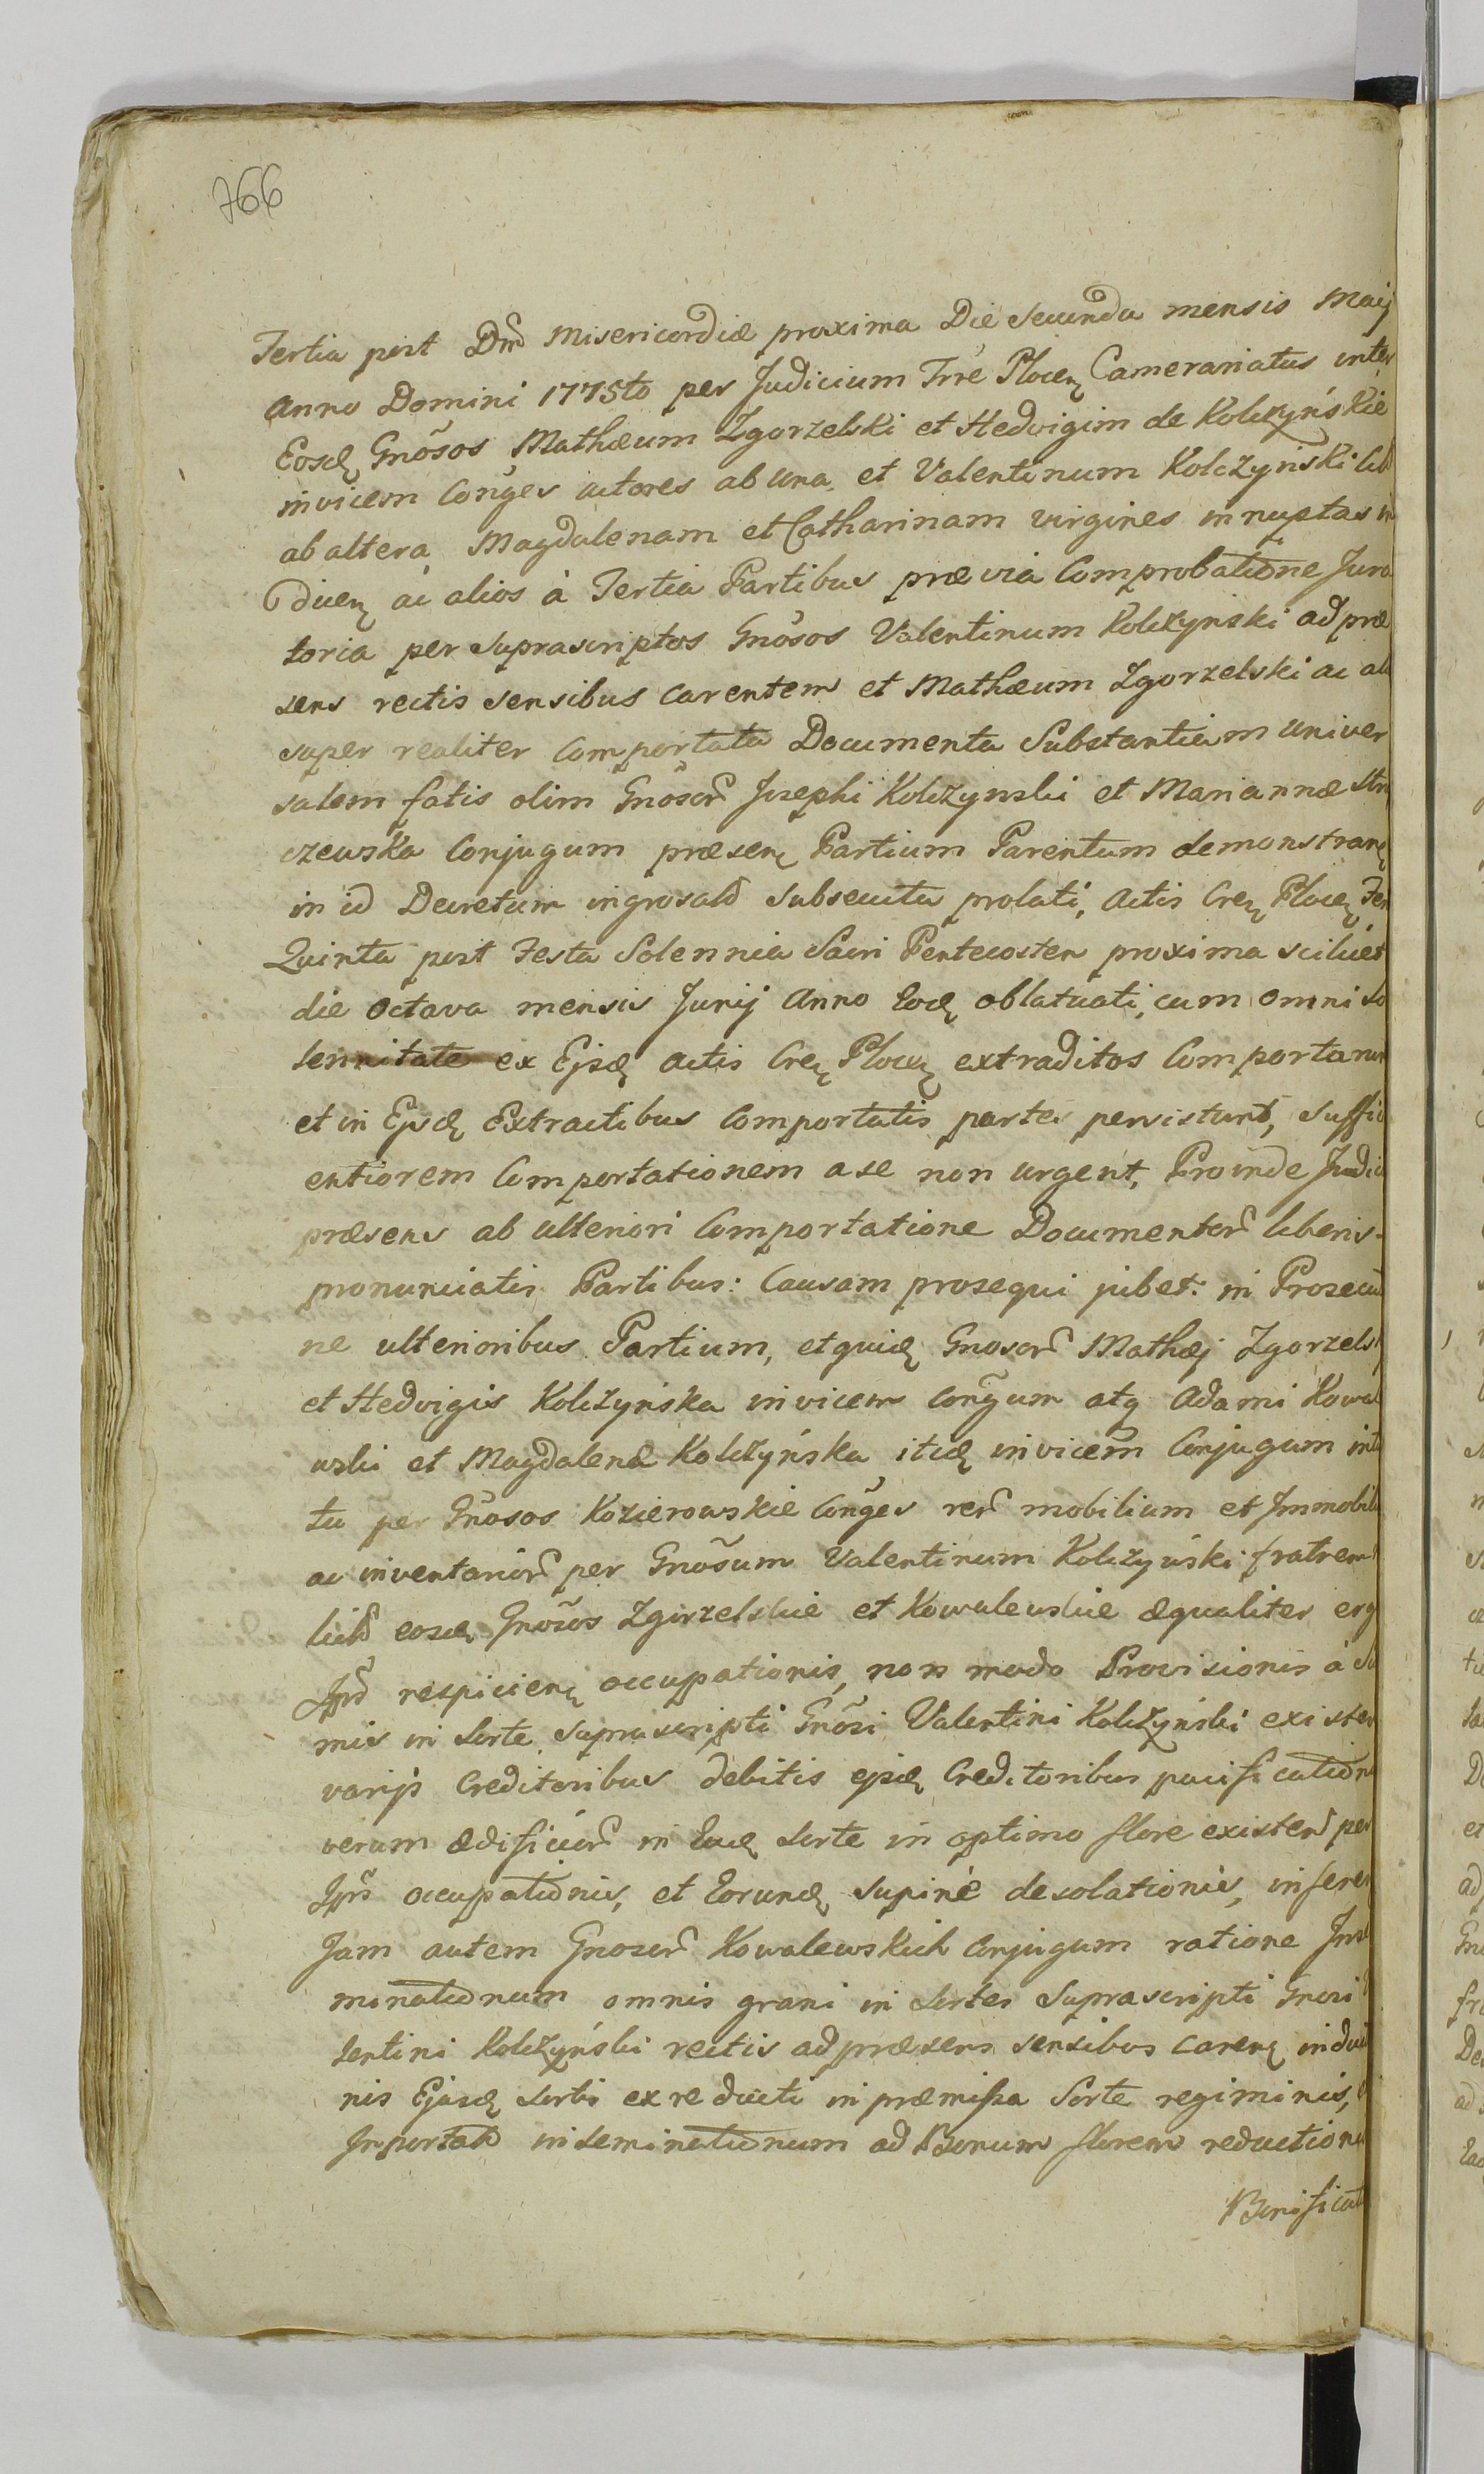 766
Tertia post Dnd Misericordiæ proxima Die Secunda mensis Maij
Anno Domini 1775to per Judicium Trre Plocen Camerariatus inter
Eosd Gnõsos Mathæum Zgorzelski et Hedvigim de Kolczyńskie
invicem Conges actores ab una et Valentinum Kolczyński
ab altera Magdalenam et Catharinam virgines innuptas
ac alios à Tertia Partibus prævia Comprobatione Jura
toria per suprascriptos Gnõsos Valentinum Kolczynski ad præ
sens rectis sensibus carentem et Mathæum Zgorzelski ac
super realiter Comportata Documenta Substantiam univer
salem fatis olim Gnõsor Josephi Kolczynski et Mariannæ
czewska Conjugum præsen Partium Parentum demonstran
in id Decretum ingrosald subsecuta prolati, Actis Cren Plocen Fer
Quinta post Festa Solennia Sacri Pentecosten proxima scilicet
die Octava mensis Junij Anno Eod oblatuati, cum omni so
lennitate ex Ejsd actis Cren Plocen extraditos Comportarunt
et in Ejsd Extractibus Comportatis partes persistunt, suffici
entiorem Comportationem a se non urgent, Proinde Judici
præsens ab ulteriori Comportatione Documentor liberis
pronunciatis Partibus: Causam prosequi jubet: in Prosecu
ne ulterioribus Partium, et quid Gnosor Mathæj Zgorzels
et Hedvigis Kolczyńska invicem Congum atq Adami Kowal
uski et Magdalenæ Kolczyńska itid invicem Conjugum
tu per Gnosos Kozierowskie Conges rer mobilium et Immobili
ac inventarior per Gnõsum Valentinum Kolczyński fratrem
eosd Gnosos Zgorzelskie et Kowalewskie æqualiter erg
respicien occupationis, non modo Provisionis à
mis in Sorte suprascripti Gnõsi Valentini Kolczyński existen
varijs Creditoribus debitis ejsd Creditoribus pacificatione
verum ædificior in Ead Sorte in optimo flore existend per
occupationis, et Eorund supinè desolationis, inferen
Jam autem Gnosor Kowalewskich Conjugum ratione Inse
minationum omnis grani in Sortes suprascripti Gnosi
lentini Kolczyński rectis ad præsens sensibus caren
nis Ejusd Sortis ex re ducti in præmissa Sorte regiminis,
Inportat inseminationum ad Bonum florem reductione
Bonificat